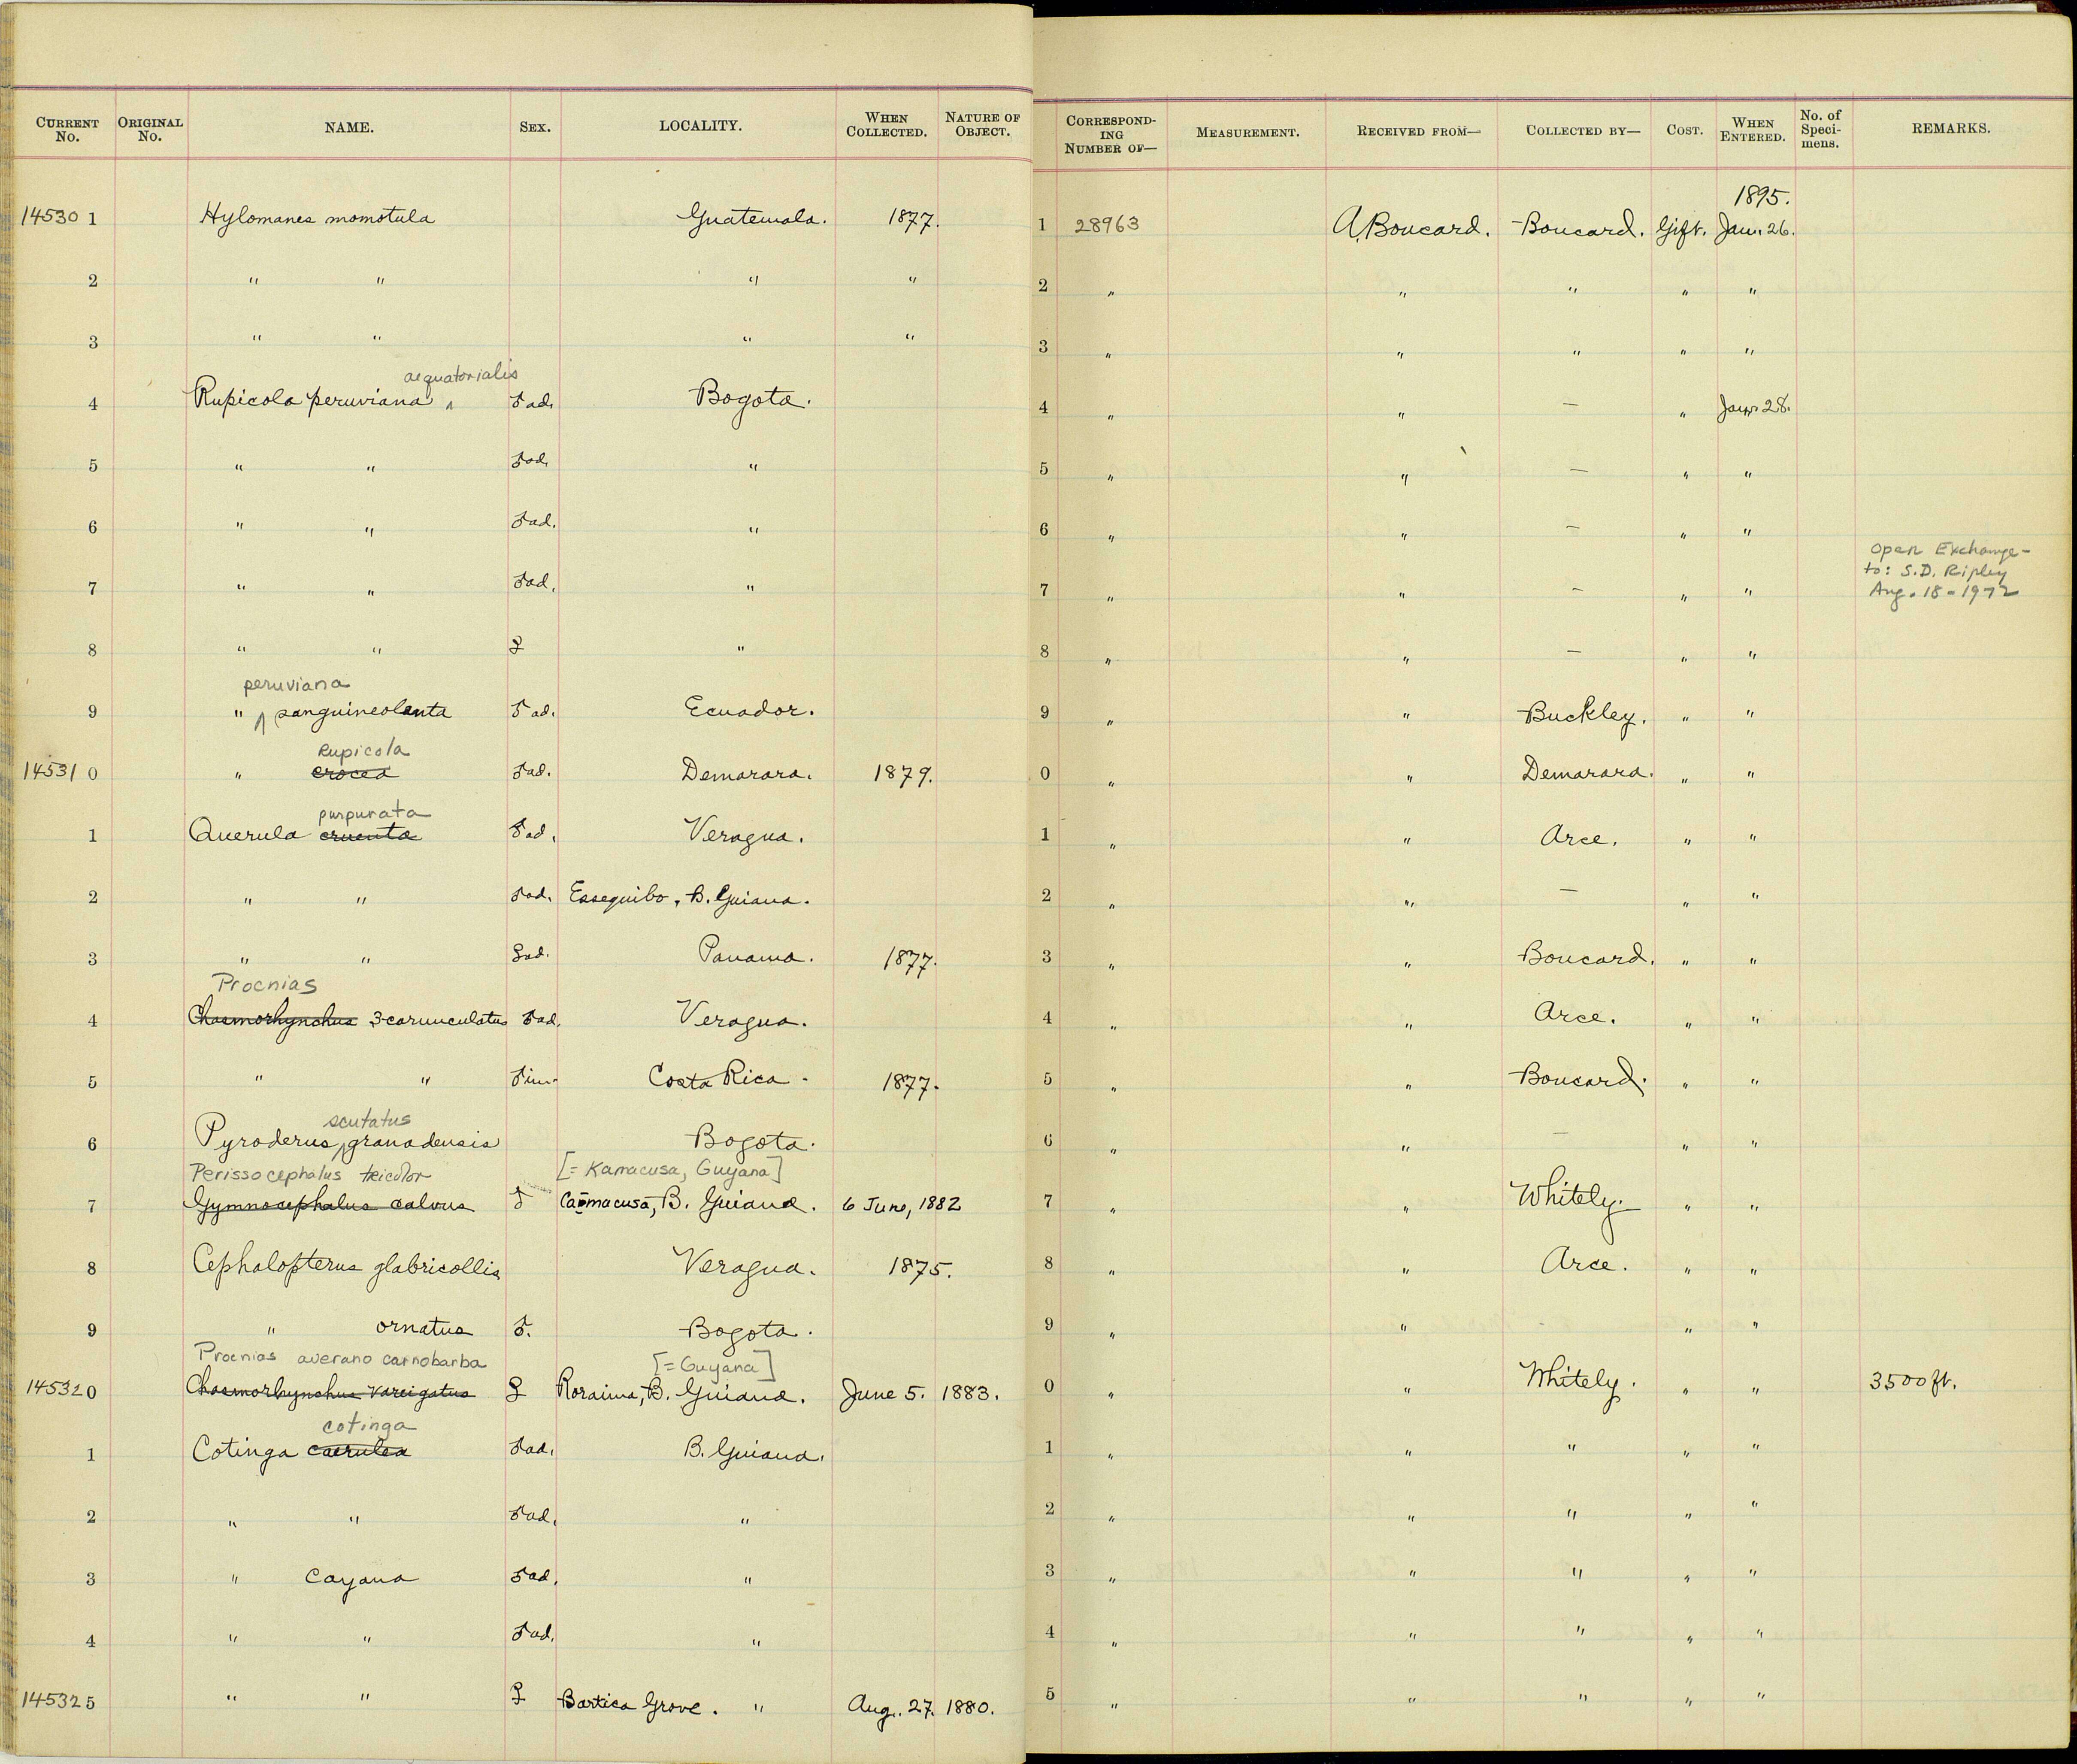 CURRENT No. ORIGINAL No. NAME. SEX. LOCALITY. WHEN COLLECTED. NATURE OF OBJECT. CORRESPOND-ING NUMBER OF— MEASUREMENT. RECEIVED FROM— COLLECTED BY— COST. WHEN ENTERED. No. of Speci-mens. REMARKS.
1895.
14530 1 Hylomanes momotula Guatemala. 1877. 1 28963 A. Boucard. Boucard. Gift. Jan. 26.
2 " " " " 2 " " " " "
3 " " " " 3 " " " " "
aequatorialis
4 Rupicola peruviana ^ ♂ ad. Bogota. 4 " " — " Jan. 28.
5 " " ♂ ad. " 5 " " — " "
6 " " ♂ ad. " 6 " " — " "
Open Exchange-
to: S.D. Ripley
7 " " ♂ ad. " 7 " " — " " Aug. 18-1972
8 " " ♀ " 8 " " — " "
peruviana
9 " ^ sanguineolenta ♂ ad. Ecuador. 9 " " Buckley. " "
rupicola
14531 0 " crocea ♂ ad. Demarara. 1879. 0 " " Demarara. " "
purpurata
1 Querula cruenta ♂ ad. Veragua. 1 " " Arce. " "
2 " " ♂ ad. Essequibo, B. Guiana. 2 " " — " "
3 " " ♀ ad. Panama. 1877. 3 " " Boucard. " "
Procnias
4 Chasmorhynchus 3-carunculatus ♂ ad. Veragua. 4 " " Arce. " "
5 " " ♂ im. Costa Rica. 1877. 5 " " Boucard. " "
scutatus
6 Pyroderus ^ granadensis Bogota. 6 " " — " "
Perissocephalus tricolor [= Kamacusa, Guyana]
7 Gymnocephalus calvus ♂ Camacusa, B. Guiana. 6 June, 1882 7 " " Whitely. " "
8 Cephalopterus glabricollis Veragua. 1875. 8 " " Arce. " "
9 " ornatus ♂. Bogota. 9 " " - " "
Procnias averano carnobarba [= Guyana]
14532 0 Chasmorhynchus vareigatus ♀ Roraima, B. Guiana. June 5. 1883. 0 " " Whitely. " " 3500 ft.
cotinga
1 Cotinga caerulea ♂ ad. B. Guiana. 1 " " " " "
2 " " ♂ ad. " 2 " " " " "
3 " Cayana ♂ ad. " 3 " " " " "
4 " " ♂ ad. " 4 " " " " "
14532 5 " " ♀ Bartica Grove. " Aug. 27. 1880. 5 " " " " "